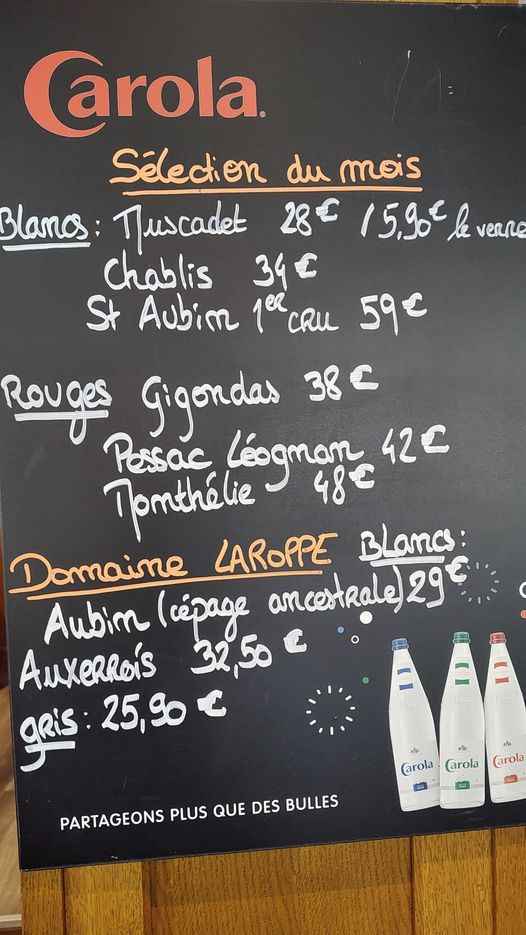 Carola.
Sélection du mois
Blancs : Muscadet 28€ / 5,90€ le verre
Chablis 34€
St Aubin 1er CRU 59€
Rouges Gigondas 38€
Pessac Léognan 42€
Monthélie 48€
Domaine LAROPPE Blancs :
Aubin (cépage ancestrale) 29€
AUXERROIS 32,50 €
gRiS : 25,90 €
Carola Carola Carola
PARTAGEONS PLUS QUE DES BULLES